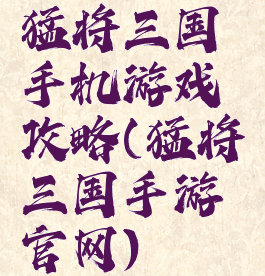 猛将三国
手机游戏
攻略(猛将
三国手游
官网)